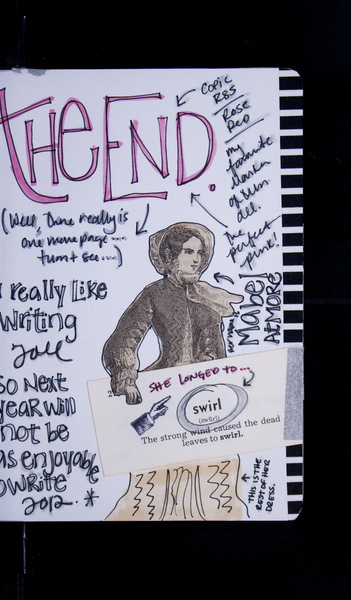 THE END.
Copic
R85
Rose
Red
my
favorite
Marker
of um
all.
the
perfect
pink!
(Well, there really is
one more page...
turn + see...)
I really like
Writing
2011
so Next
year will
not be
as enjoyable
to write
2012. *
her name is
Mabel
ATMORE
SHE LONGED TO...
2
swirl
(swûrl)
The strong wind caused the dead
leaves to swirl.
THIS IS THE
REST OF HER
DRESS.